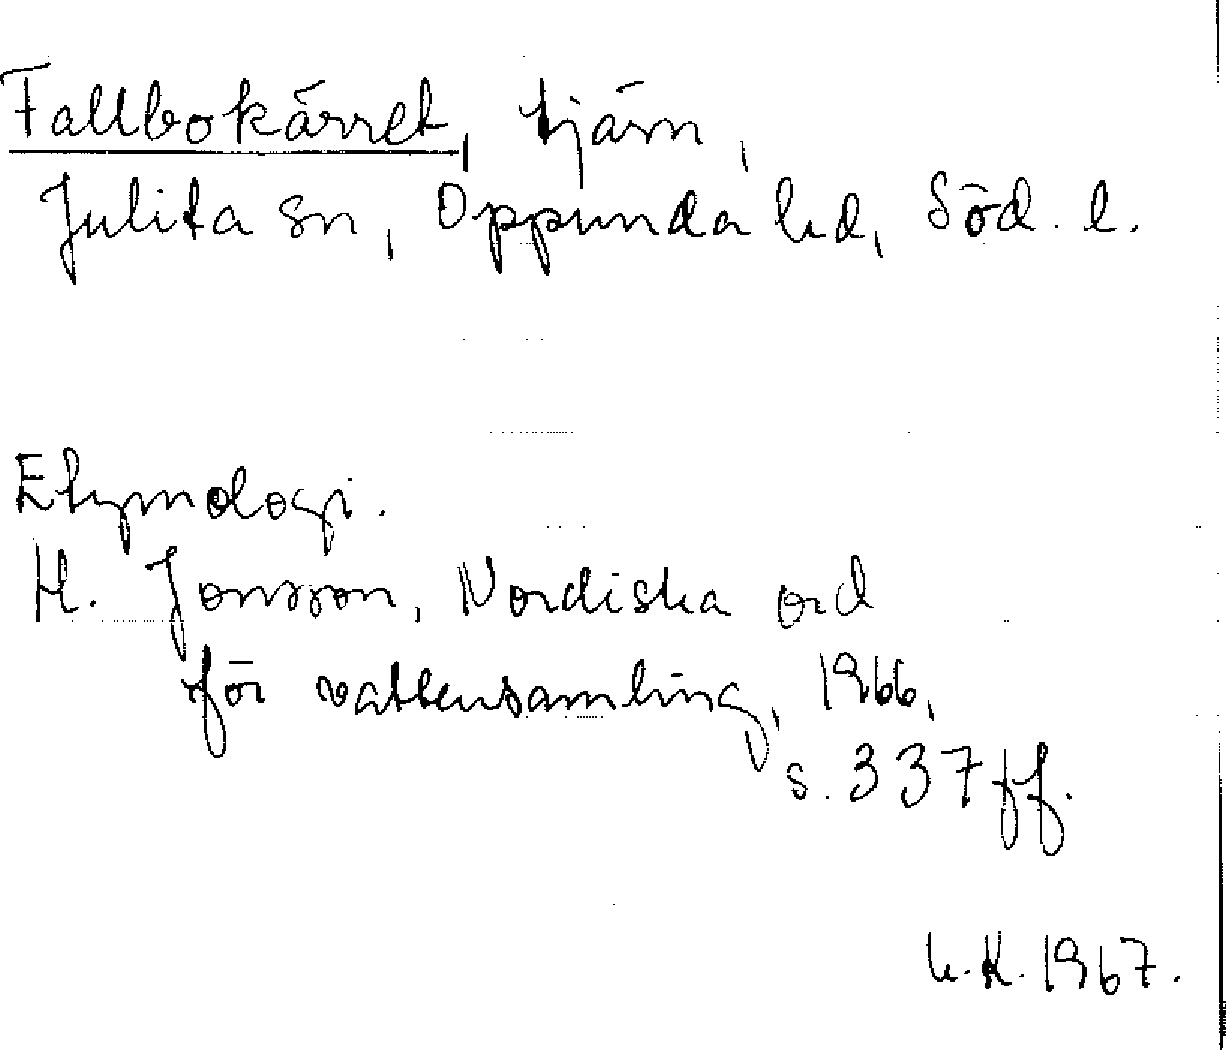 Fallbokärret, tjärn,
Julita sn, Oppunda hd, Söd. l.
Etymologi.
H. Jonsson, Nordiska ord
för vattensamling, 1966,
s. 337 ff.
K. 1967.